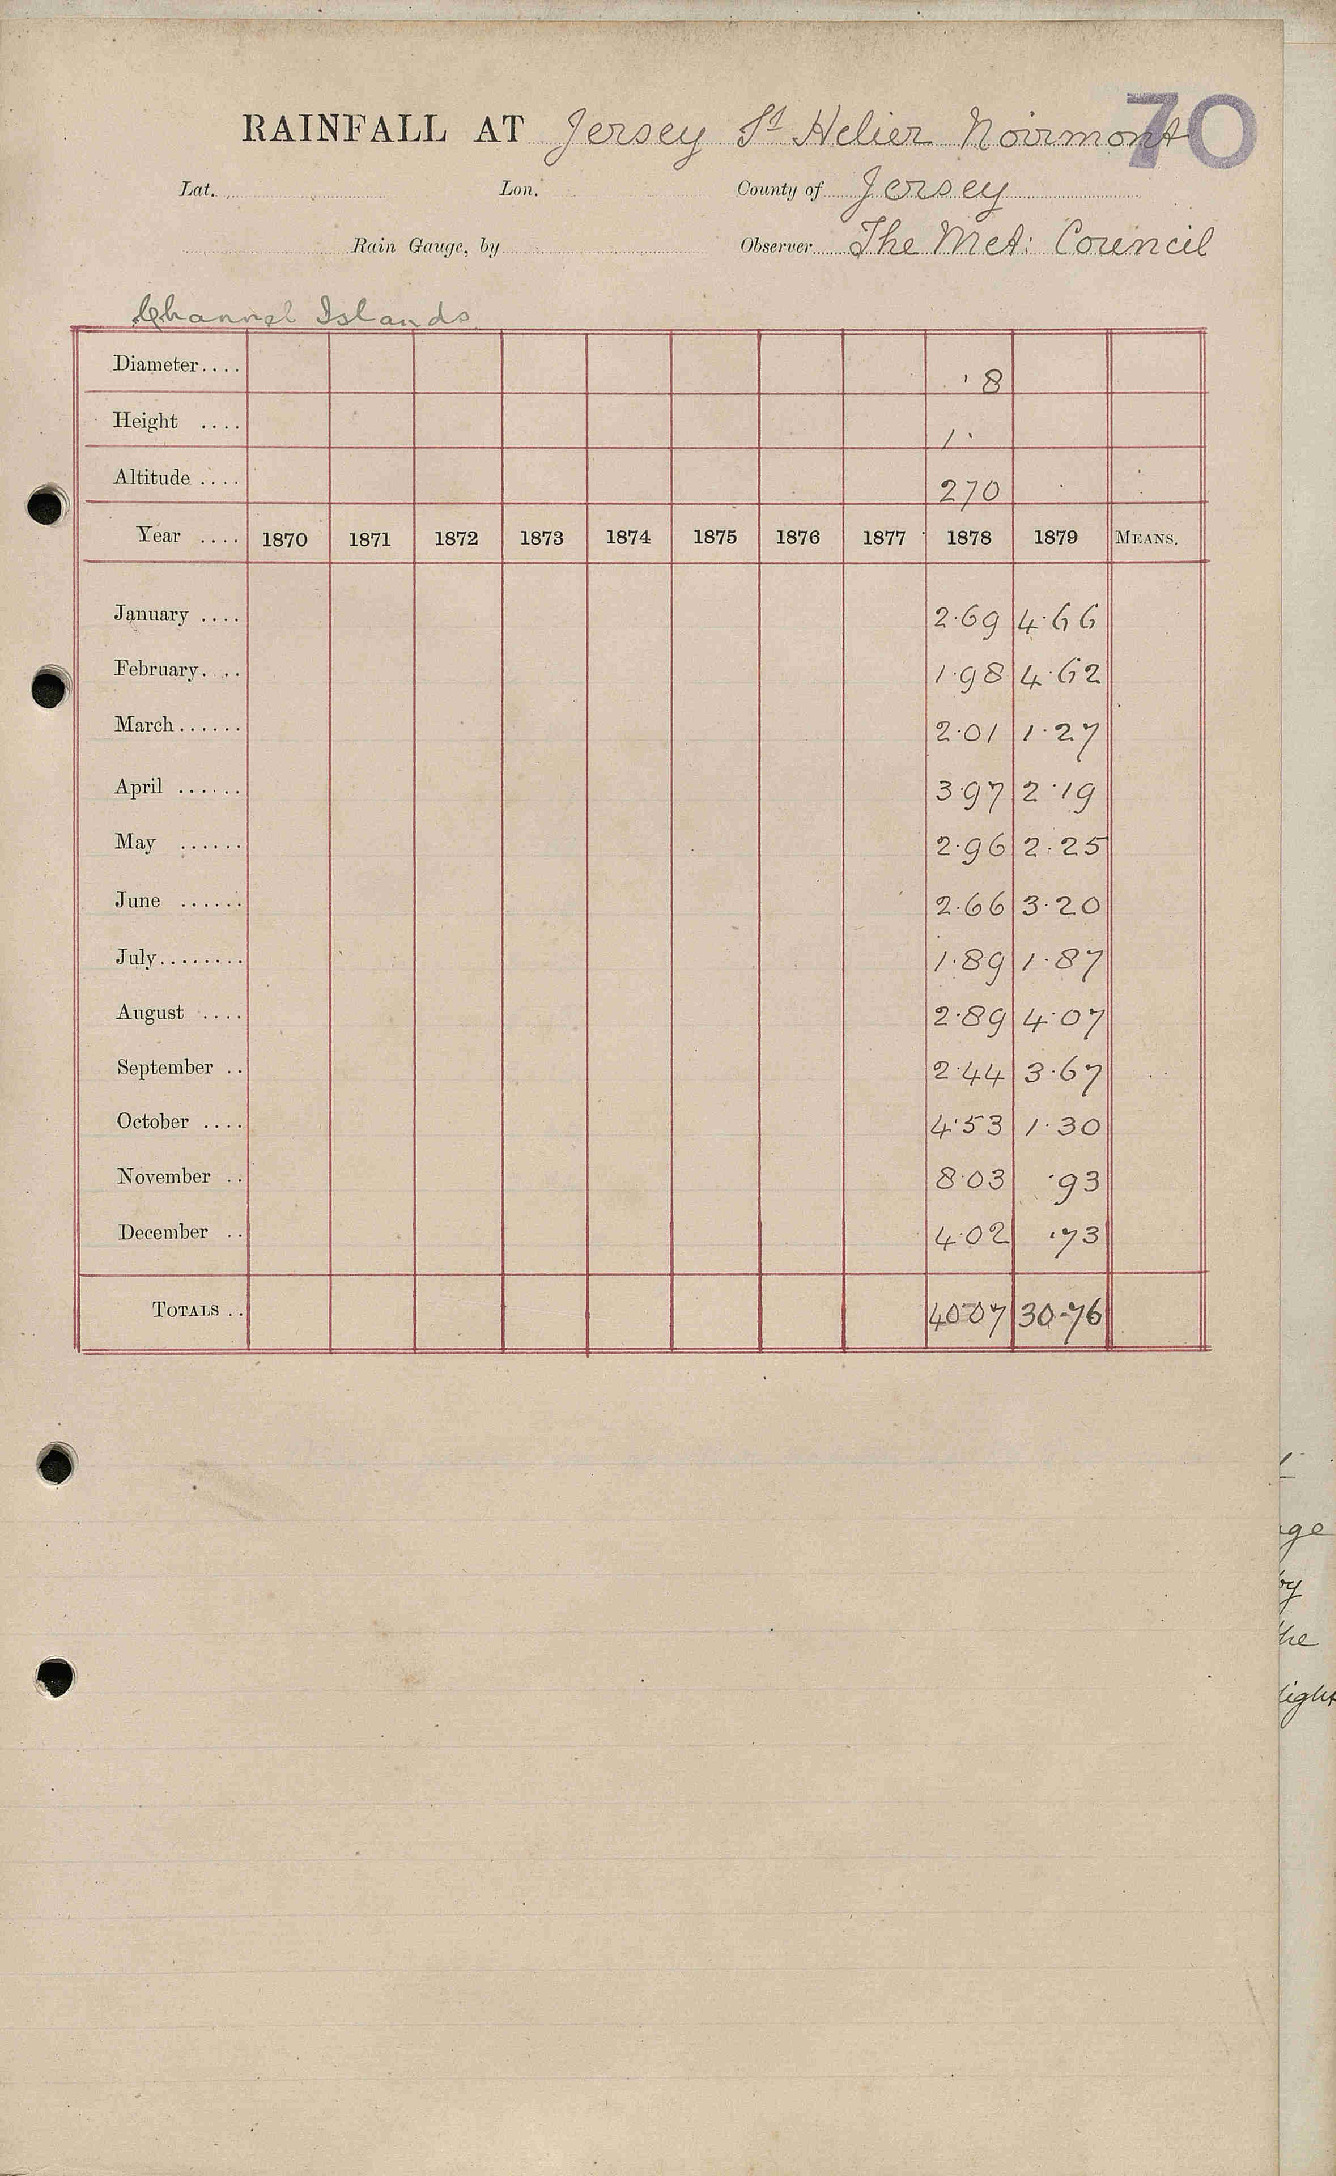 70
RAINFALL AT Jersey St Helier Noirmont
Lat. Lon. County of Jersey
Rain Gauge, by Observer The Met: Council
Channel Islands
Diameter.... ·8
Height .... 1·
Altitude .... 270
Year .... 1870 1871 1872 1873 1874 1875 1876 1877 1878 1879 MEANS.
January .... 2·69 4·66
February.... 1·98 4·62
March...... 2·01 1·27
April ...... 3·97 2·19
May ...... 2·96 2·25
June ...... 2·66 3·20
July........ 1·89 1·87
August .... 2·89 4·07
September .. 2·44 3·67
October .... 4·53 1·30
November .. 8·03 ·93
December .. 4·02 ·73
TOTALS .. 40·07 30·76
ge
by
the
light